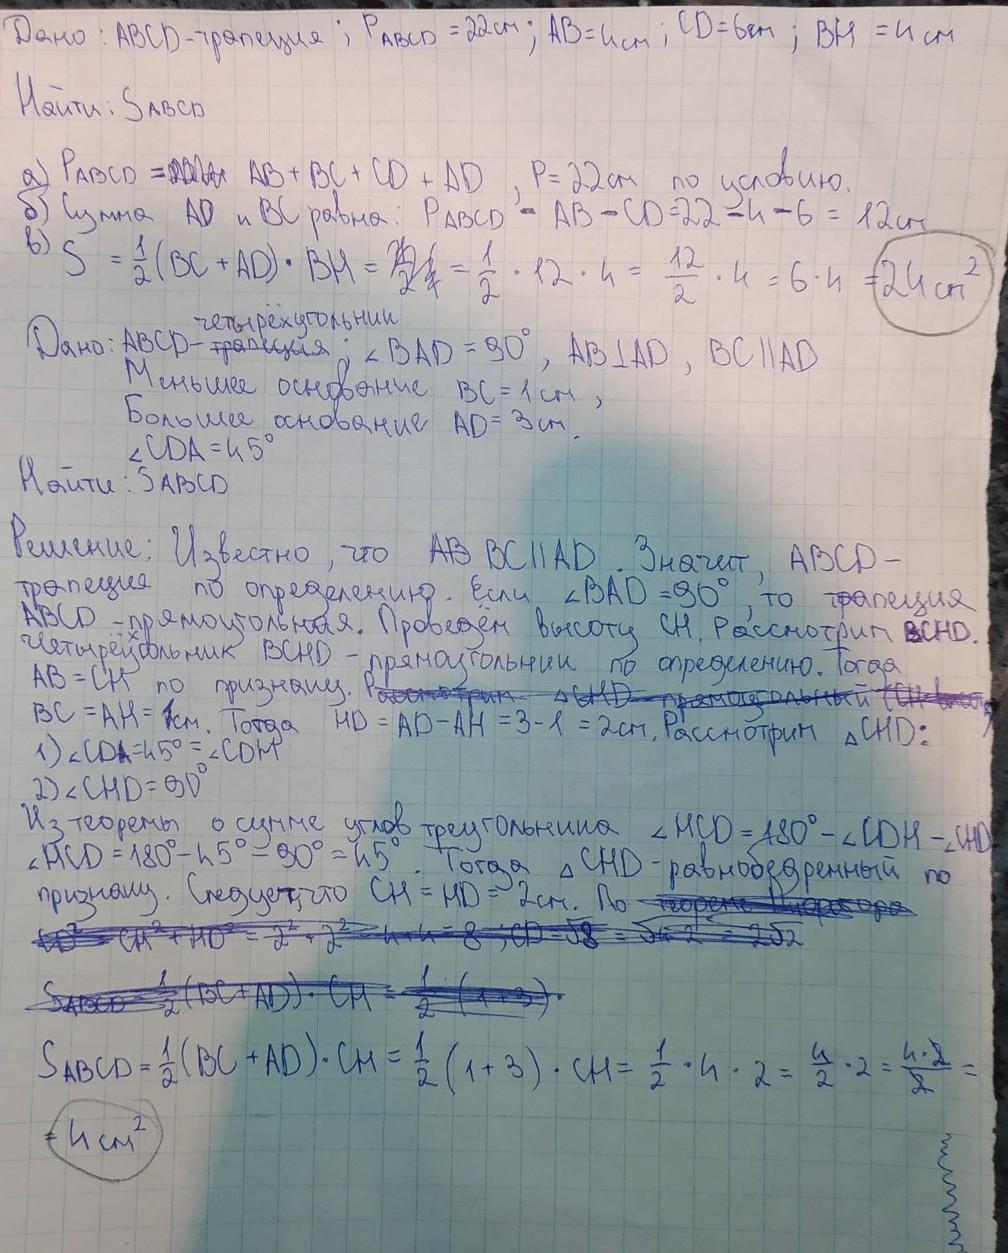 Дано: ABCD-трапеция; PABCD = 22см; AB=4см; CD=6см; BH = 4см
Найти: SABCD
а) PABCD = AB + BC + CD + AD, P=22см по условию.
б) Сумма AD и BC равна: PABCD - AB - CD=22-4-6 = 12см
в) S = 1/2(BC + AD) · BH = = 1/2 · 12 · 4 = 12/2 · 4 = 6·4 = 24см²
четырёхугольник
Дано: ABCD- трапеция; ∠BAD = 90°, AB⊥AD, BC||AD
Меньшее основание BC=1см,
Большее основание AD=3см.
∠CDA=45°
Найти: SABCD
Решение: Известно, что AB BC||AD. Значит, ABCD-
трапеция по определению. Если ∠BAD=90°, то трапеция
ABCD -прямоугольная. Проведём высоту CH. Рассмотрим BCHD.
Четырёхугольник BCHD -прямоугольник по определению. Тогда
AB=CH по признаку. Рассмотрим △CHD прямоугольный (CH
BC=AH=1см. Тогда HD=AD-AH=3-1=2см. Рассмотрим △CHD:
1) ∠CDA=45°=∠CDH
2) ∠CHD=90°
Из теоремы о сумме углов треугольника ∠HCD=180°-∠CDH-∠CHD
∠HCD=180°-45°-90°=45°. Тогда △CHD-равнобедренный по
признаку. Следует, что CH=HD=2см. По теореме Пифагора
CD²= CH²+HD²=2²+2²=4+4=8; CD=√8=√4·2=2√2
SABCD=1/2(BC+AD)·CH=1/2·(1+3)·
SABCD=1/2(BC+AD)·CH=1/2(1+3)·CH=1/2·4·2=4/2·2=4·2/2=
=4см²